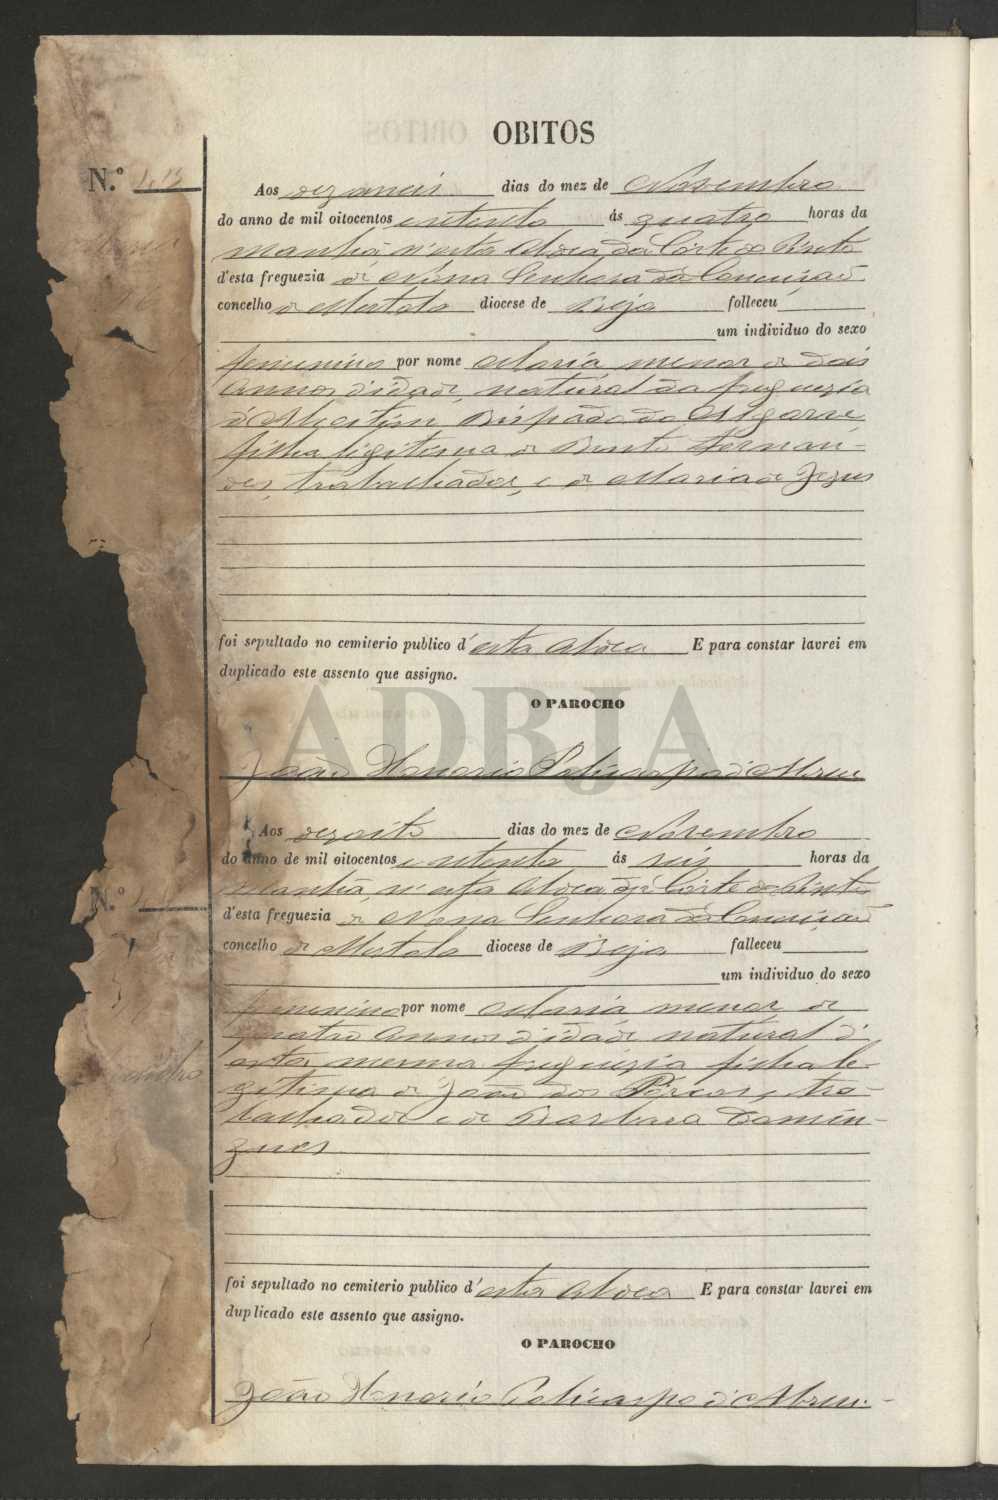 OBITOS
N.º 113
Aos dezaseis dias do mez de Novembro
do anno de mil oitocentos e setenta ás quatro horas da
manhã n'esta Aldeia da Corte do Pinto
d'esta freguezia de Nossa Senhora da Conceição
concelho de Mertola diocese de Beja folleceu
um individuo do sexo
femenino por nome Maria menor de dois
annos d'idade, natural da freguezia
d'Alcoitim Bispado do Algarve
filha legitima de Bento Fernan-
des, trabalhador, e de Maria de Jezus
foi sepultado no cemiterio publico d'esta Aldea E para constar lavrei em
duplicado este assento que assigno.
O PAROCHO
ADBJA
João Honorio Policarpo d'Abreu
N.º
Aos dezoito dias do mez de Novembro
do anno de mil oitocentos e setenta ás seis horas da
Manhã, n'esta Aldea da Corte do Pinto
d'esta freguezia de Nossa Senhora da Conceição
concelho de Mertola diocese de Beja falleceu
um individuo do sexo
femenino por nome Maria menor de
quatro annos d'idade natural d'
esta mesma freguezia filha le-
gitima de João dos Porcos, tra-
balhador e de Barbara Domin-
gues
foi sepultado no cemiterio publico d'esta Aldea E para constar lavrei em
duplicado este assento que assigno.
O PAROCHO
João Honorio Policarpo d'Abreu.